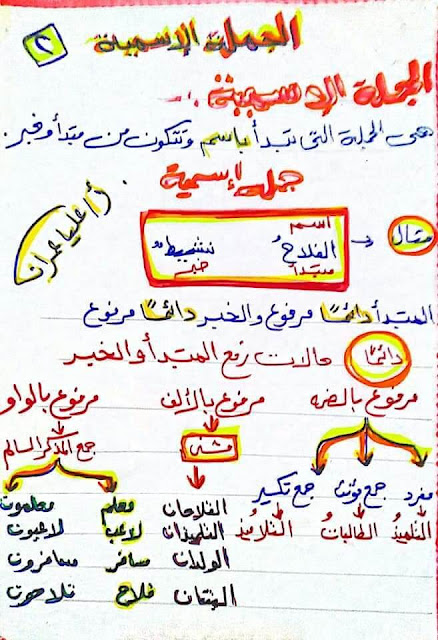 الجملة الإسمية
٢
الجملة الإسمية :-
هى الجملة التى تبدأ باسم وتتكون من مبتدأ وخبر.
جملة إسمية
مثال
اسم
الفلاحُ نشيطٌ
مبتدأ خبر
أ/علياء عمران
المبتدأ دائمًا مرفوع والخبر دائمًا مرفوع
دائمًا حالات رفع المبتدأ والخبر
مرفوع بالضمه مرفوع بالألف مرفوع بالواو
مفرد جمع مؤنث جمع تكسير مثنى جمع المذكر السالم
التلميذُ الطالباتُ التلاميذُ الفلاحان معلم معلمون
التلميذان لاعب لاعبون
الولدان مسافر مسافرون
البنتان فلاح فلاحون